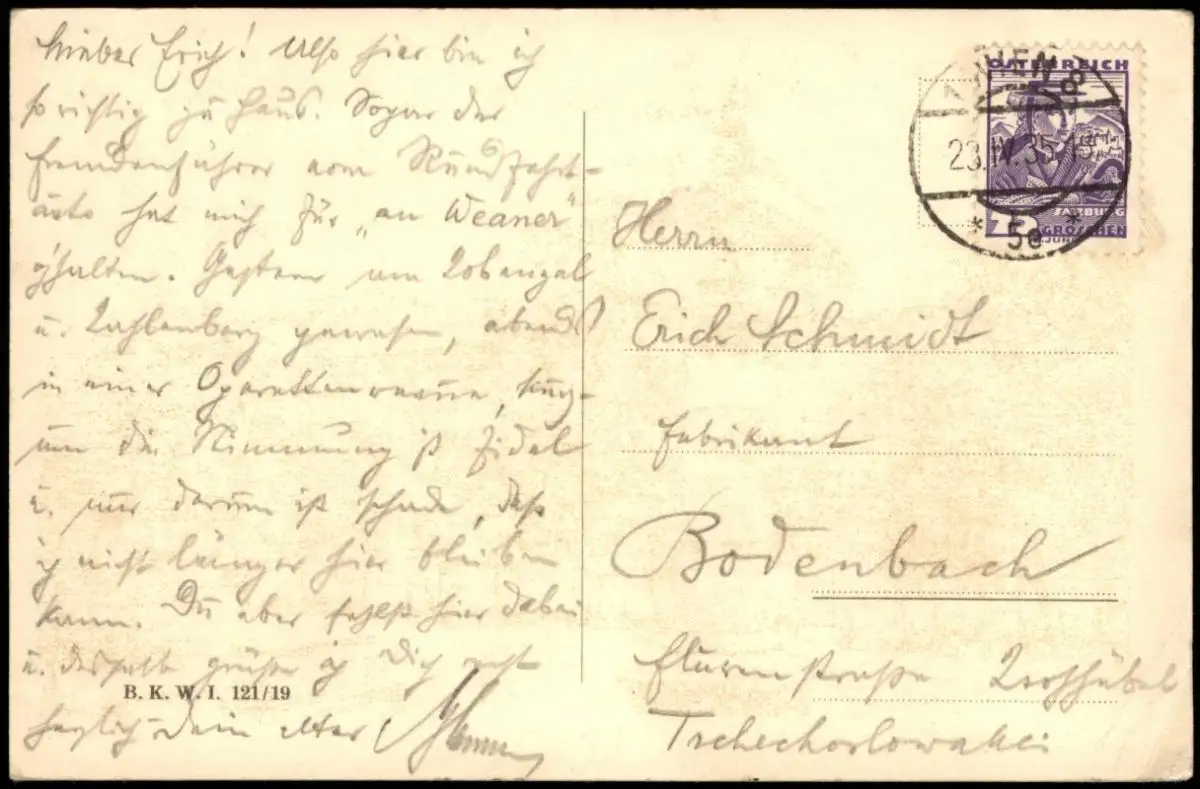 Lieber Erich! Also hier bin ich
so richtig zu Haus. Sogar der
Fremdenführer vom Rundfahrt-
auto hat mich für „an Weaner"
g'halten. Gestern am Kobenzl
u. Kahlenberg gewesen, abends
in einer Operettenrevue, kurz-
um die Stimmung ist fidel
u. nur darum ist schade, daß
ich nicht länger hier bleiben
kann. Du aber fehlst hier dabei
u. deshalb grüße ich Dich recht
herzlich Dein alter
B. K. W. I. 121/19
ÖSTERREICH
SALZBURG
GROSCHEN
WIEN
23.IV.35.15
* 5e *
Herrn
Erich Schmidt
Fabrikant
Bodenbach
Flurenstraße
Tschechoslowakei